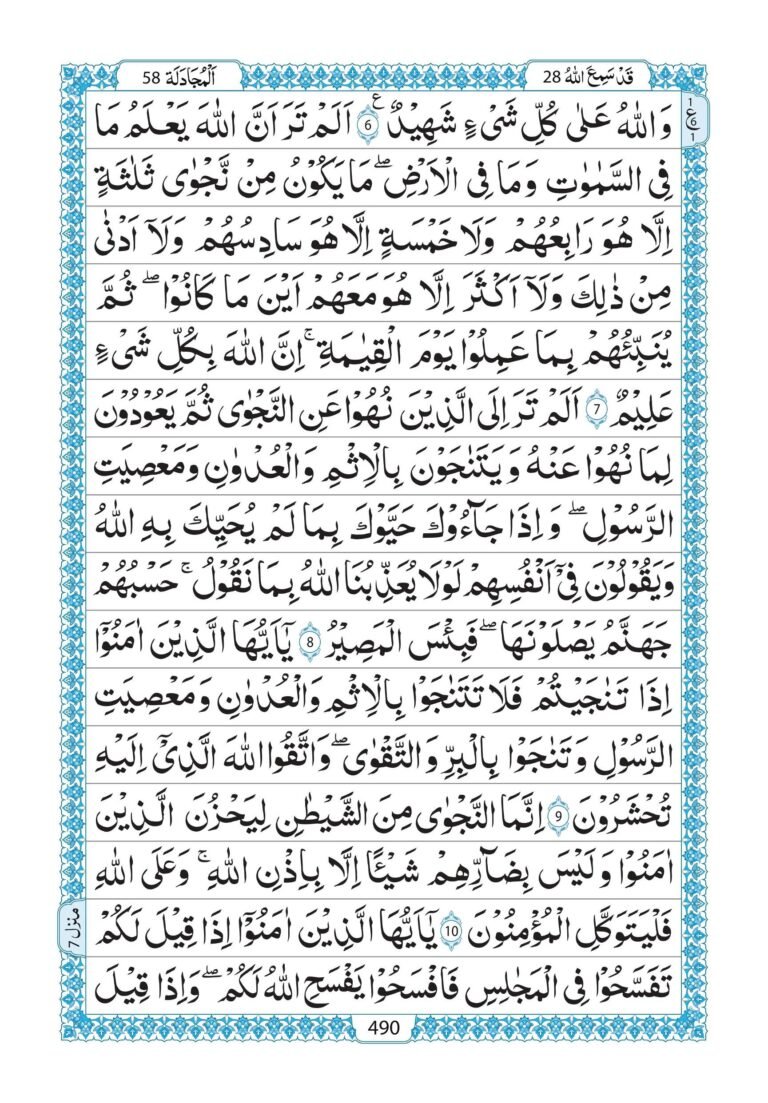 قَدْ سَمِعَ اللهُ 28
اَلْمُجَادَلَة 58
وَاللهُ عَلٰى كُلِّ شَىْءٍ شَهِيْدٌ ۧ 6 اَلَمْ تَرَ اَنَّ اللهَ يَعْلَمُ مَا
فِى السَّمٰوٰتِ وَمَا فِى الْاَرْضِ ؕ مَا يَكُوْنُ مِنْ نَّجْوٰى ثَلٰثَةٍ
اِلَّا هُوَ رَابِعُهُمْ وَلَا خَمْسَةٍ اِلَّا هُوَ سَادِسُهُمْ وَلَآ اَدْنٰى
مِنْ ذٰلِكَ وَلَآ اَكْثَرَ اِلَّا هُوَ مَعَهُمْ اَيْنَ مَا كَانُوْا ۖ ثُمَّ
يُنَبِّئُهُمْ بِمَا عَمِلُوْا يَوْمَ الْقِيٰمَةِ ۚ اِنَّ اللهَ بِكُلِّ شَىْءٍ
عَلِيْمٌ 7 اَلَمْ تَرَ اِلَى الَّذِيْنَ نُهُوْا عَنِ النَّجْوٰى ثُمَّ يَعُوْدُوْنَ
لِمَا نُهُوْا عَنْهُ وَيَتَنٰجَوْنَ بِالْاِثْمِ وَالْعُدْوٰنِ وَمَعْصِيَتِ
الرَّسُوْلِ ۖ وَاِذَا جَآءُوْكَ حَيَّوْكَ بِمَا لَمْ يُحَيِّكَ بِهِ اللهُ
وَيَقُوْلُوْنَ فِىْٓ اَنْفُسِهِمْ لَوْلَا يُعَذِّبُنَا اللهُ بِمَا نَقُوْلُ ۚ حَسْبُهُمْ
جَهَنَّمُ يَصْلَوْنَهَا ۖ فَبِئْسَ الْمَصِيْرُ 8 يٰٓاَيُّهَا الَّذِيْنَ اٰمَنُوْٓا
اِذَا تَنٰجَيْتُمْ فَلَا تَتَنٰجَوْا بِالْاِثْمِ وَالْعُدْوٰنِ وَمَعْصِيَتِ
الرَّسُوْلِ وَتَنٰجَوْا بِالْبِرِّ وَالتَّقْوٰى ۖ وَاتَّقُوا اللهَ الَّذِىْٓ اِلَيْهِ
تُحْشَرُوْنَ 9 اِنَّمَا النَّجْوٰى مِنَ الشَّيْطٰنِ لِيَحْزُنَ الَّذِيْنَ
اٰمَنُوْا وَلَيْسَ بِضَآرِّهِمْ شَيْـًٔا اِلَّا بِاِذْنِ اللهِ ۚ وَعَلَى اللهِ
فَلْيَتَوَكَّلِ الْمُؤْمِنُوْنَ 10 يٰٓاَيُّهَا الَّذِيْنَ اٰمَنُوْٓا اِذَا قِيْلَ لَكُمْ
تَفَسَّحُوْا فِى الْمَجٰلِسِ فَافْسَحُوْا يَفْسَحِ اللهُ لَكُمْ ۖ وَاِذَا قِيْلَ
1
ع
6
1
منزل 7
490